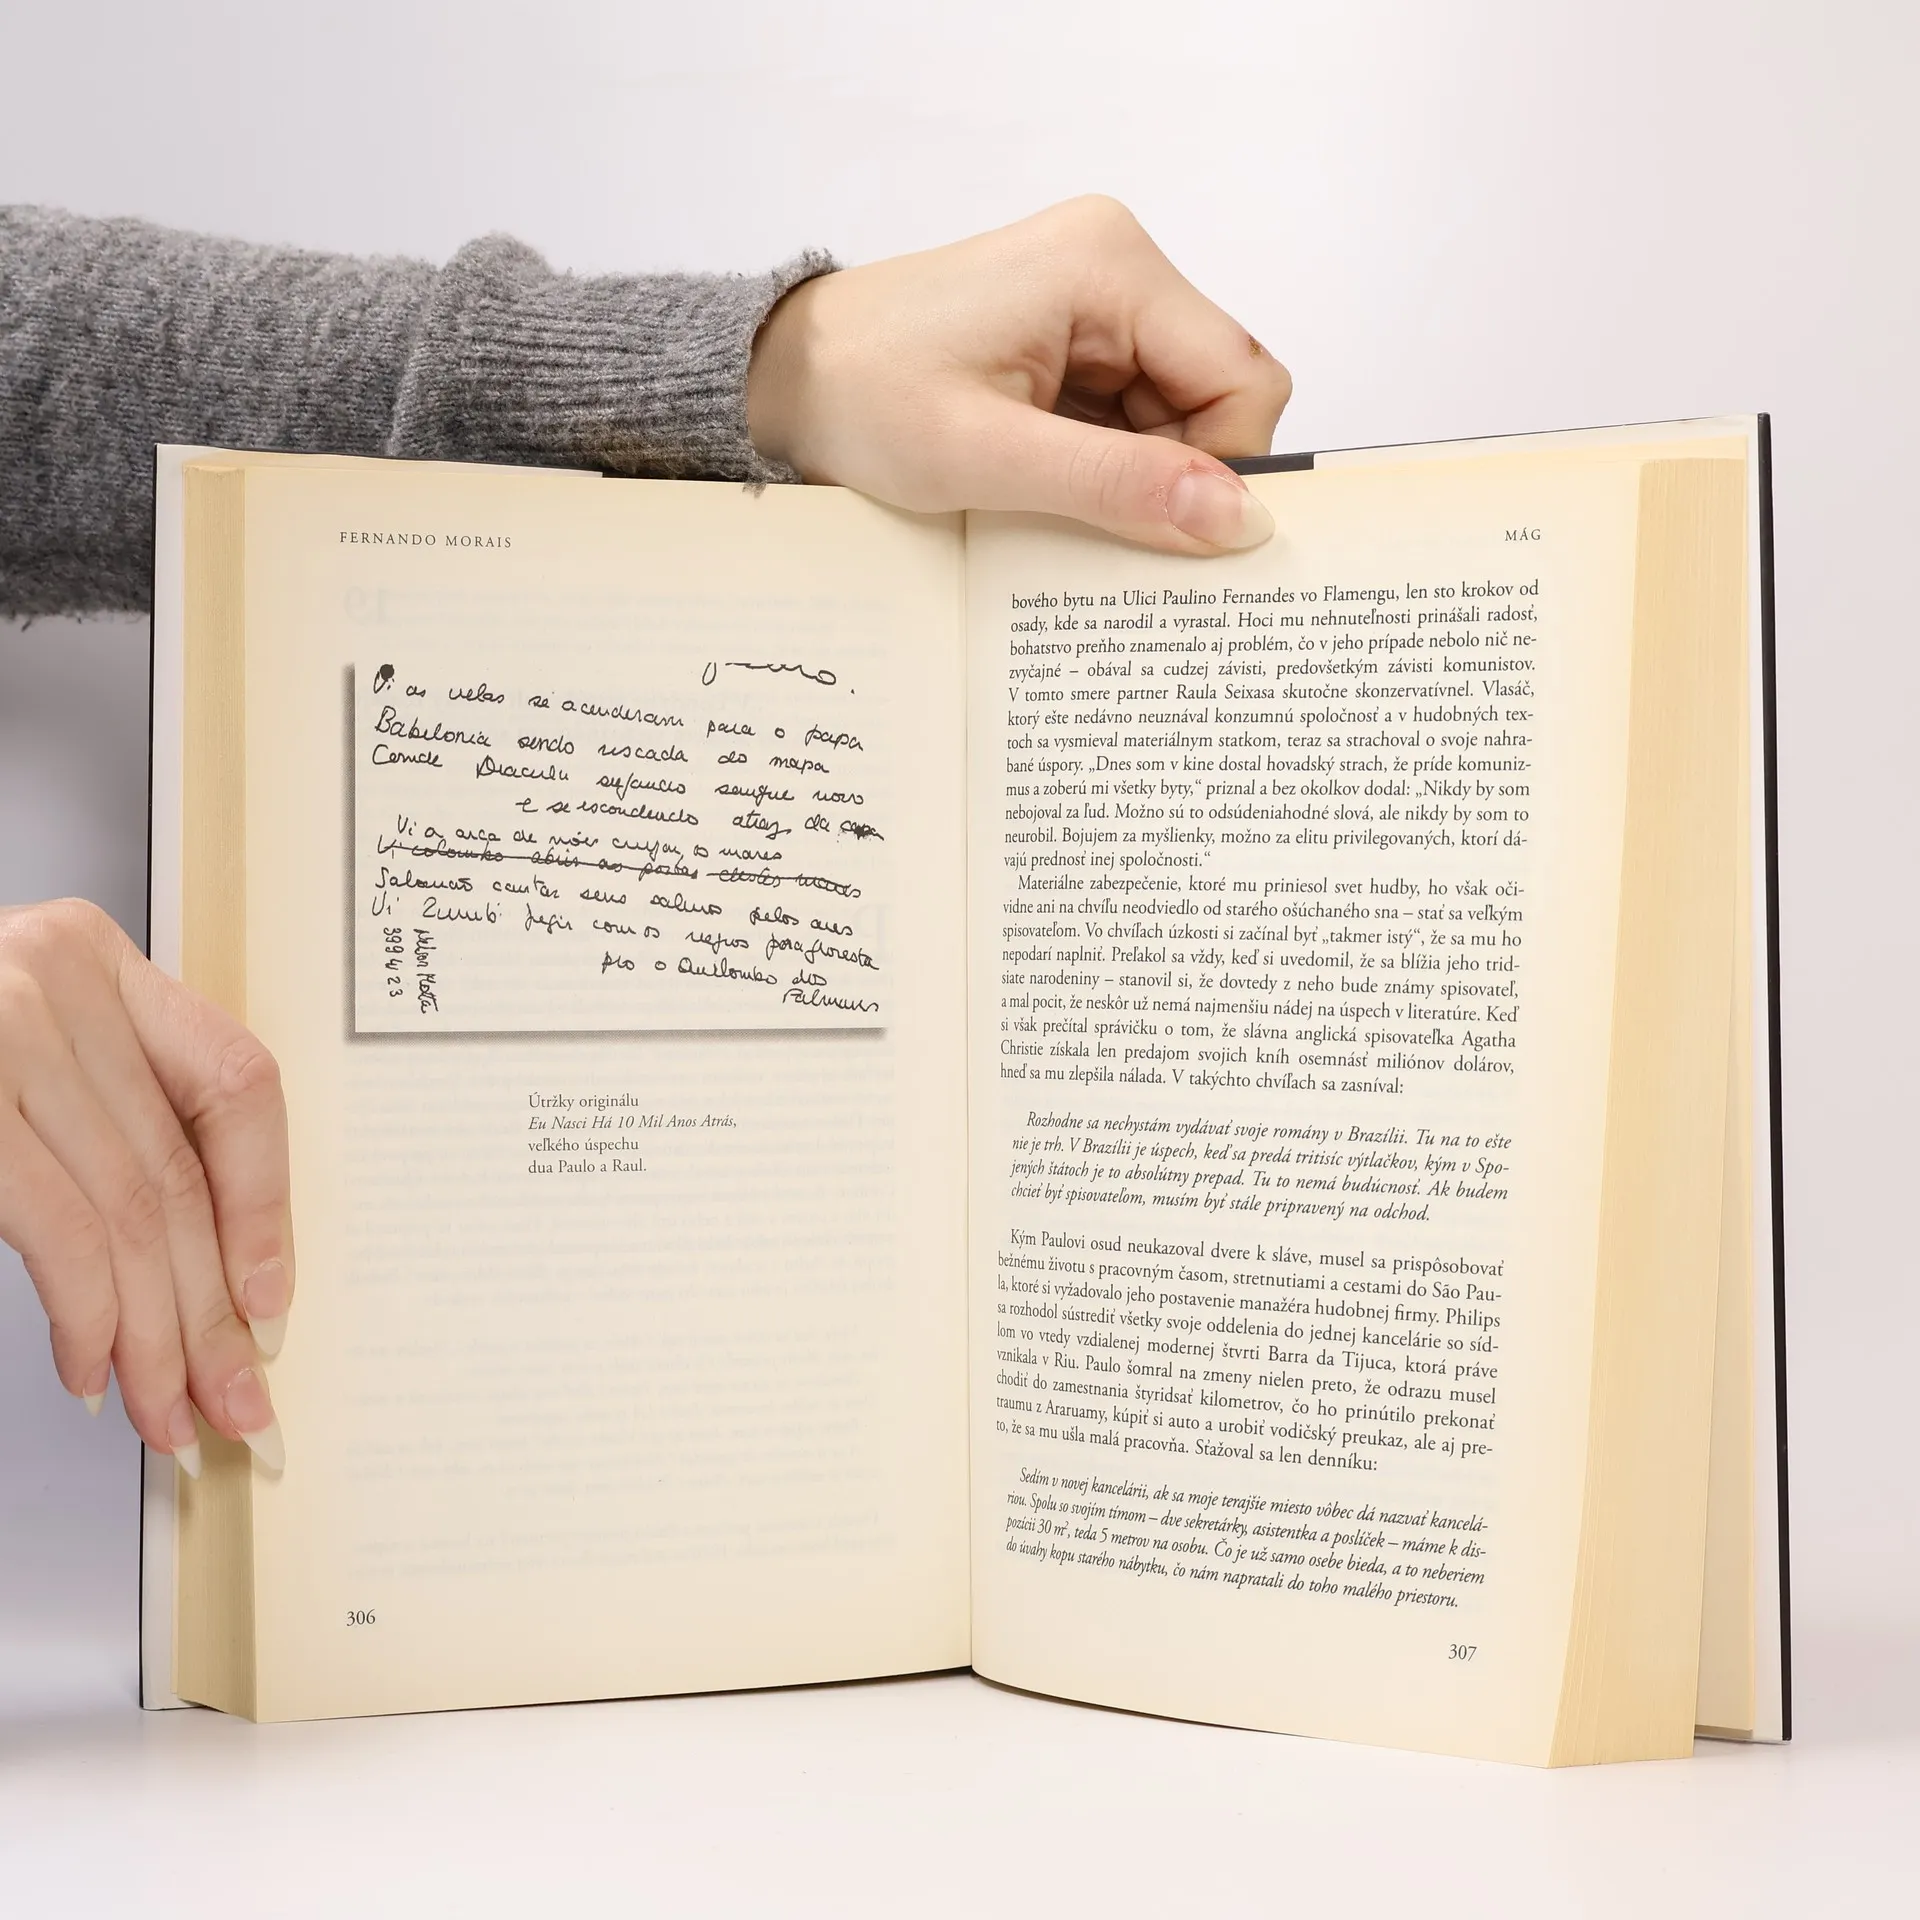 FERNANDO MORAIS
Vi as velas se acenderam para o papa
Babilonia sendo riscada do mapa
Conde Dracula sugando sangue novo
e se escondendo atraz da capa
Vi a arca de nóes cruzar os mares
Vi colombo abrir as portas destes mares
Salomão cantar seus salmos pelos ares
Vi Zumbi fugir com os negros pra floresta
pro o Quilombo dos
Palmares
Nelson Motta
399 4 23
Útržky originálu
Eu Nasci Há 10 Mil Anos Atrás,
veľkého úspechu
dua Paulo a Raul.
306
MÁG
bového bytu na Ulici Paulino Fernandes vo Flamengu, len sto krokov od
osady, kde sa narodil a vyrastal. Hoci mu nehnuteľnosti prinášali radosť,
bohatstvo preňho znamenalo aj problém, čo v jeho prípade nebolo nič ne-
zvyčajné – obával sa cudzej závisti, predovšetkým závisti komunistov.
V tomto smere partner Raula Seixasa skutočne skonzervatívnel. Vlasáč,
ktorý ešte nedávno neuznával konzumnú spoločnosť a v hudobných tex-
toch sa vysmieval materiálnym statkom, teraz sa strachoval o svoje nahra-
bané úspory. „Dnes som v kine dostal hovadský strach, že príde komuniz-
mus a zoberú mi všetky byty,“ priznal a bez okolkov dodal: „Nikdy by som
nebojoval za ľud. Možno sú to odsúdeniahodné slová, ale nikdy by som to
neurobil. Bojujem za myšlienky, možno za elitu privilegovaných, ktorí dá-
vajú prednosť inej spoločnosti.“
Materiálne zabezpečenie, ktoré mu priniesol svet hudby, ho však oči-
vidne ani na chvíľu neodviedlo od starého ošúchaného sna – stať sa veľkým
spisovateľom. Vo chvíľach úzkosti si začínal byť „takmer istý“, že sa mu ho
nepodarí naplniť. Preľakol sa vždy, keď si uvedomil, že sa blížia jeho trid-
siate narodeniny – stanovil si, že dovtedy z neho bude známy spisovateľ,
a mal pocit, že neskôr už nemá najmenšiu nádej na úspech v literatúre. Keď
si však prečítal správičku o tom, že slávna anglická spisovateľka Agatha
Christie získala len predajom svojich kníh osemnásť miliónov dolárov,
hneď sa mu zlepšila nálada. V takýchto chvíľach sa zasníval:
Rozhodne sa nechystám vydávať svoje romány v Brazílii. Tu na to ešte
nie je trh. V Brazílii je úspech, keď sa predá tritisíc výtlačkov, kým v Spo-
jených štátoch je to absolútny prepad. Tu to nemá budúcnosť. Ak budem
chcieť byť spisovateľom, musím byť stále pripravený na odchod.
Kým Paulovi osud neukazoval dvere k sláve, musel sa prispôsobovať
bežnému životu s pracovným časom, stretnutiami a cestami do São Pau-
la, ktoré si vyžadovalo jeho postavenie manažéra hudobnej firmy. Philips
sa rozhodol sústrediť všetky svoje oddelenia do jednej kancelárie so síd-
lom vo vtedy vzdialenej modernej štvrti Barra da Tijuca, ktorá práve
vznikala v Riu. Paulo šomral na zmeny nielen preto, že odrazu musel
chodiť do zamestnania štyridsať kilometrov, čo ho prinútilo prekonať
traumu z Araruamy, kúpiť si auto a urobiť vodičský preukaz, ale aj pre-
to, že sa mu ušla malá pracovňa. Sťažoval sa len denníku:
Sedím v novej kancelárii, ak sa moje terajšie miesto vôbec dá nazvať kancelá-
riou. Spolu so svojím tímom – dve sekretárky, asistentka a poslíček – máme k dis-
pozícii 30 m², teda 5 metrov na osobu. Čo je už samo osebe bieda, a to neberiem
do úvahy kopu starého nábytku, čo nám napratali do toho malého priestoru.
307